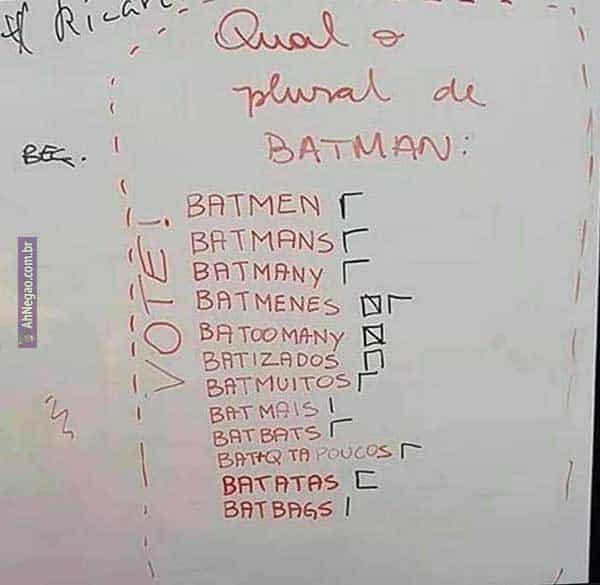 Ricar
Qual o
plural de
BATMAN:
BEC.
VOTE!
BATMEN
BATMANS
BATMANY
BATMENES
BATOOMANY
BATIZADOS
BATMUITOS
BATMAIS
BATBATS
BAT+Q TA POUCOS
BATATAS
BATBAGS
AhNegao.com.br